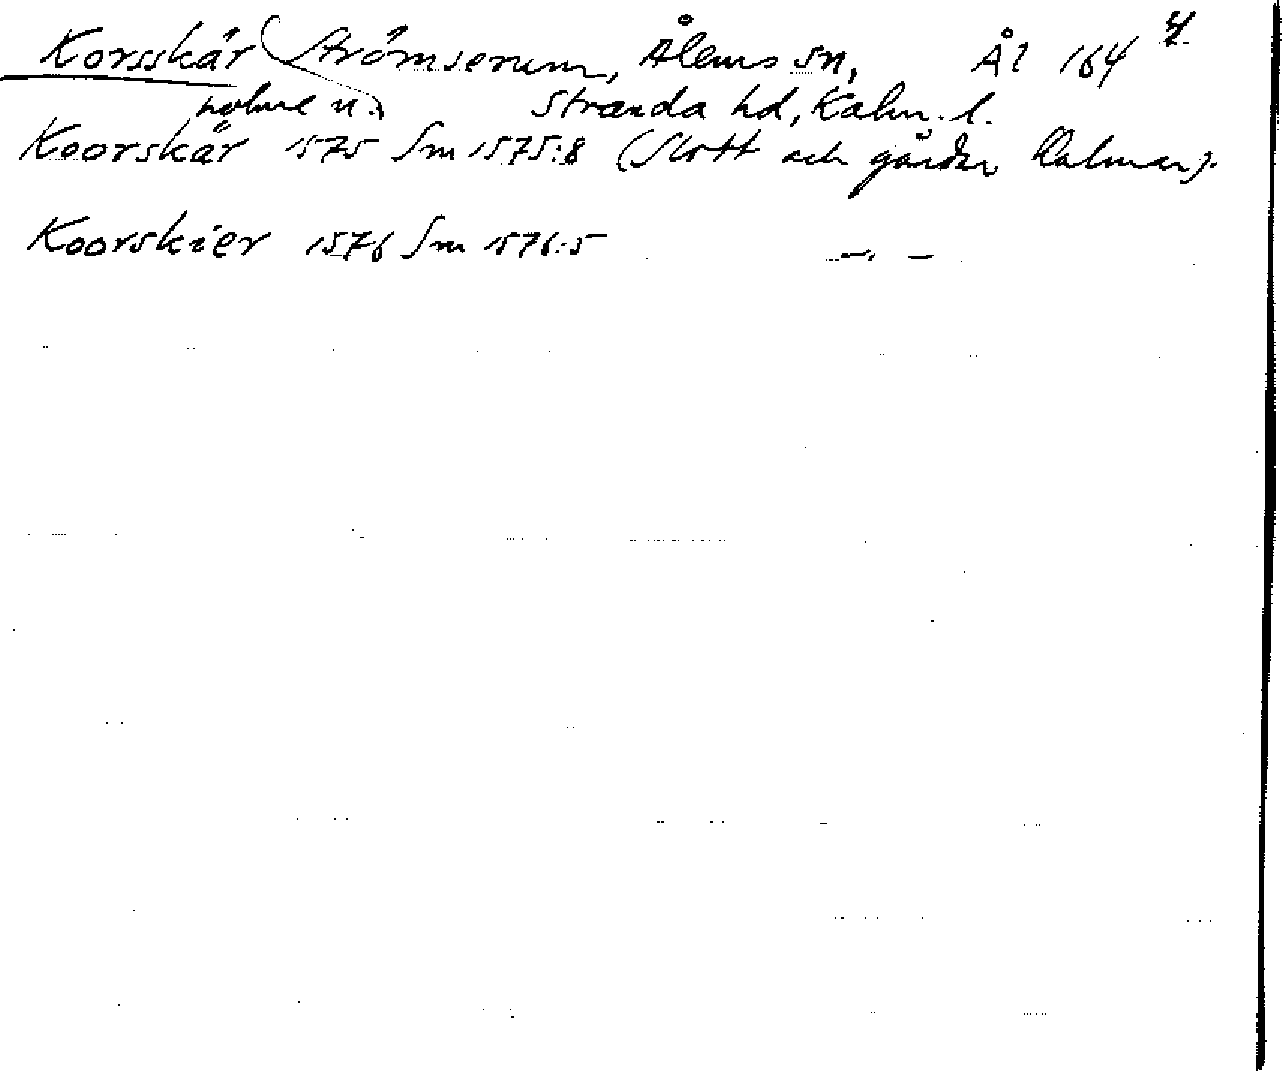 Korsskär Strömserum, Ålems sn, Ål 164 4
holme u. Stranda hd, Kalm. l.
Koorskär 1575 Sm 1575:8 (Slott och gårdar Kalmar).
Koorskier 1576 Sm 1576:5 —,, —